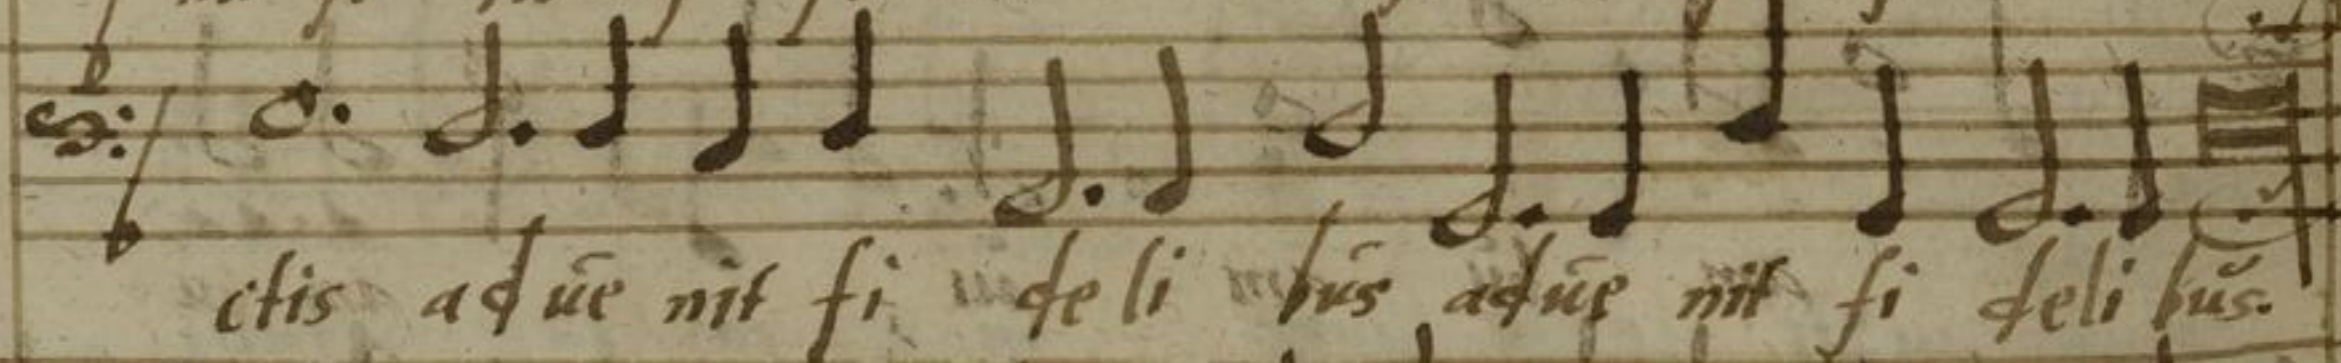 ctis adūe nit fi deli būs adūe nit fi deli būs.